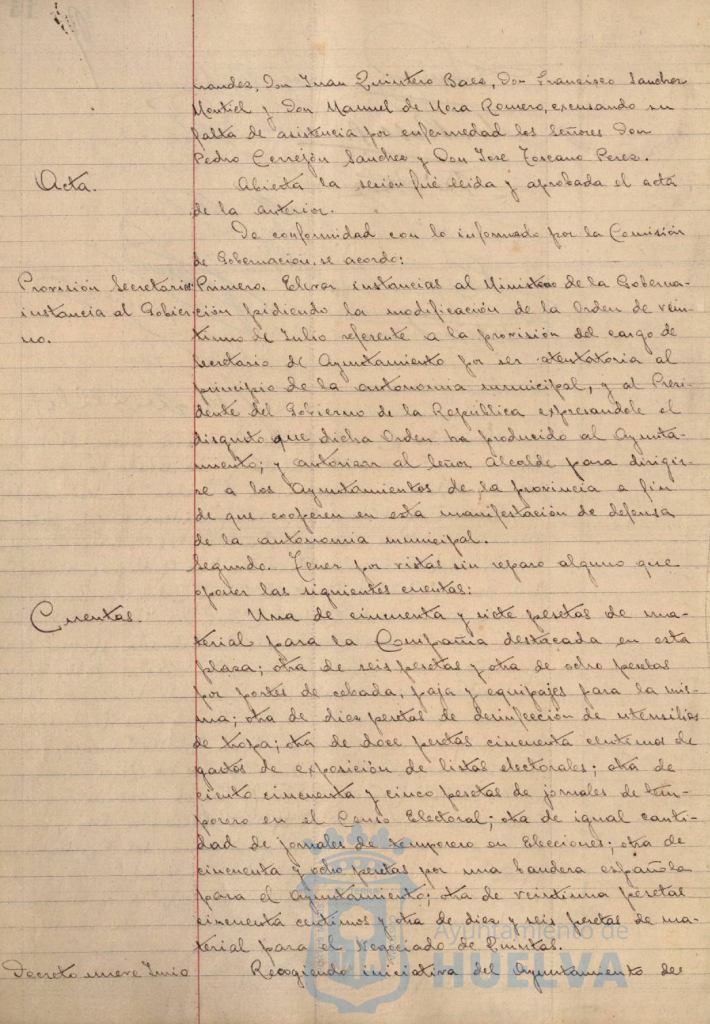 nandez, Don Juan Quintero Baez, Don Francisco Sanchez
Montiel y Don Manuel de Mora Romero, excusando su
falta de asistencia por enfermedad los Señores Don
Pedro Cerrejón Sanchez y Don Jose Toscano Perez.
Acta.
Abierta la sesión fué leida y aprobada el acta
de la anterior.
De conformidad con lo informado por la Comisión
de Gobernación, se acordo:
Provisión Secretaria
instancia al Gobier-
no.
Primero. Elevar instancias al Ministro de la Goberna-
ción pidiendo la modificación de la Orden de vein-
tiuno de Julio referente a la provisión del cargo de
Secretario de Ayuntamiento por ser atentatoria al
principio de la autonomia municipal, y al Presi-
dente del Gobierno de la República expresandole el
disgusto que dicha Orden ha producido al Ayunta-
miento; y autorizar al Señor Alcalde para dirigir-
se a los Ayuntamientos de la provincia a fin
de que cooperen en esta manifestación de defensa
de la autonomia municipal.
Segundo. Tener por vistas sin reparo alguno que
oponer las siguientes cuentas:
Cuentas.
Una de cincuenta y siete pesetas de ma-
terial para la Compañia destacada en esta
plaza; otra de seis pesetas y otra de ocho pesetas
por portes de cebada, paja y equipajes para la mis-
ma; otra de diez pesetas de desinfección de utensilios
de tropa; otra de doce pesetas cincuenta centimos de
gastos de exposición de listas electorales; otra de
ciento cincuenta y cinco pesetas de jornales de tem-
porero en el Censo Electoral; otra de igual canti-
dad de jornales de temporero en Elecciones; otra de
cincuenta y ocho pesetas por una bandera española
para el Ayuntamiento; otra de veintiuna pesetas
cincuenta centimos y otra de diez y seis pesetas de ma-
terial para el Negociado de Quintas.
Decreto nueve Junio
Recogiendo iniciativa del Ayuntamiento de
Ayuntamiento de
HUELVA